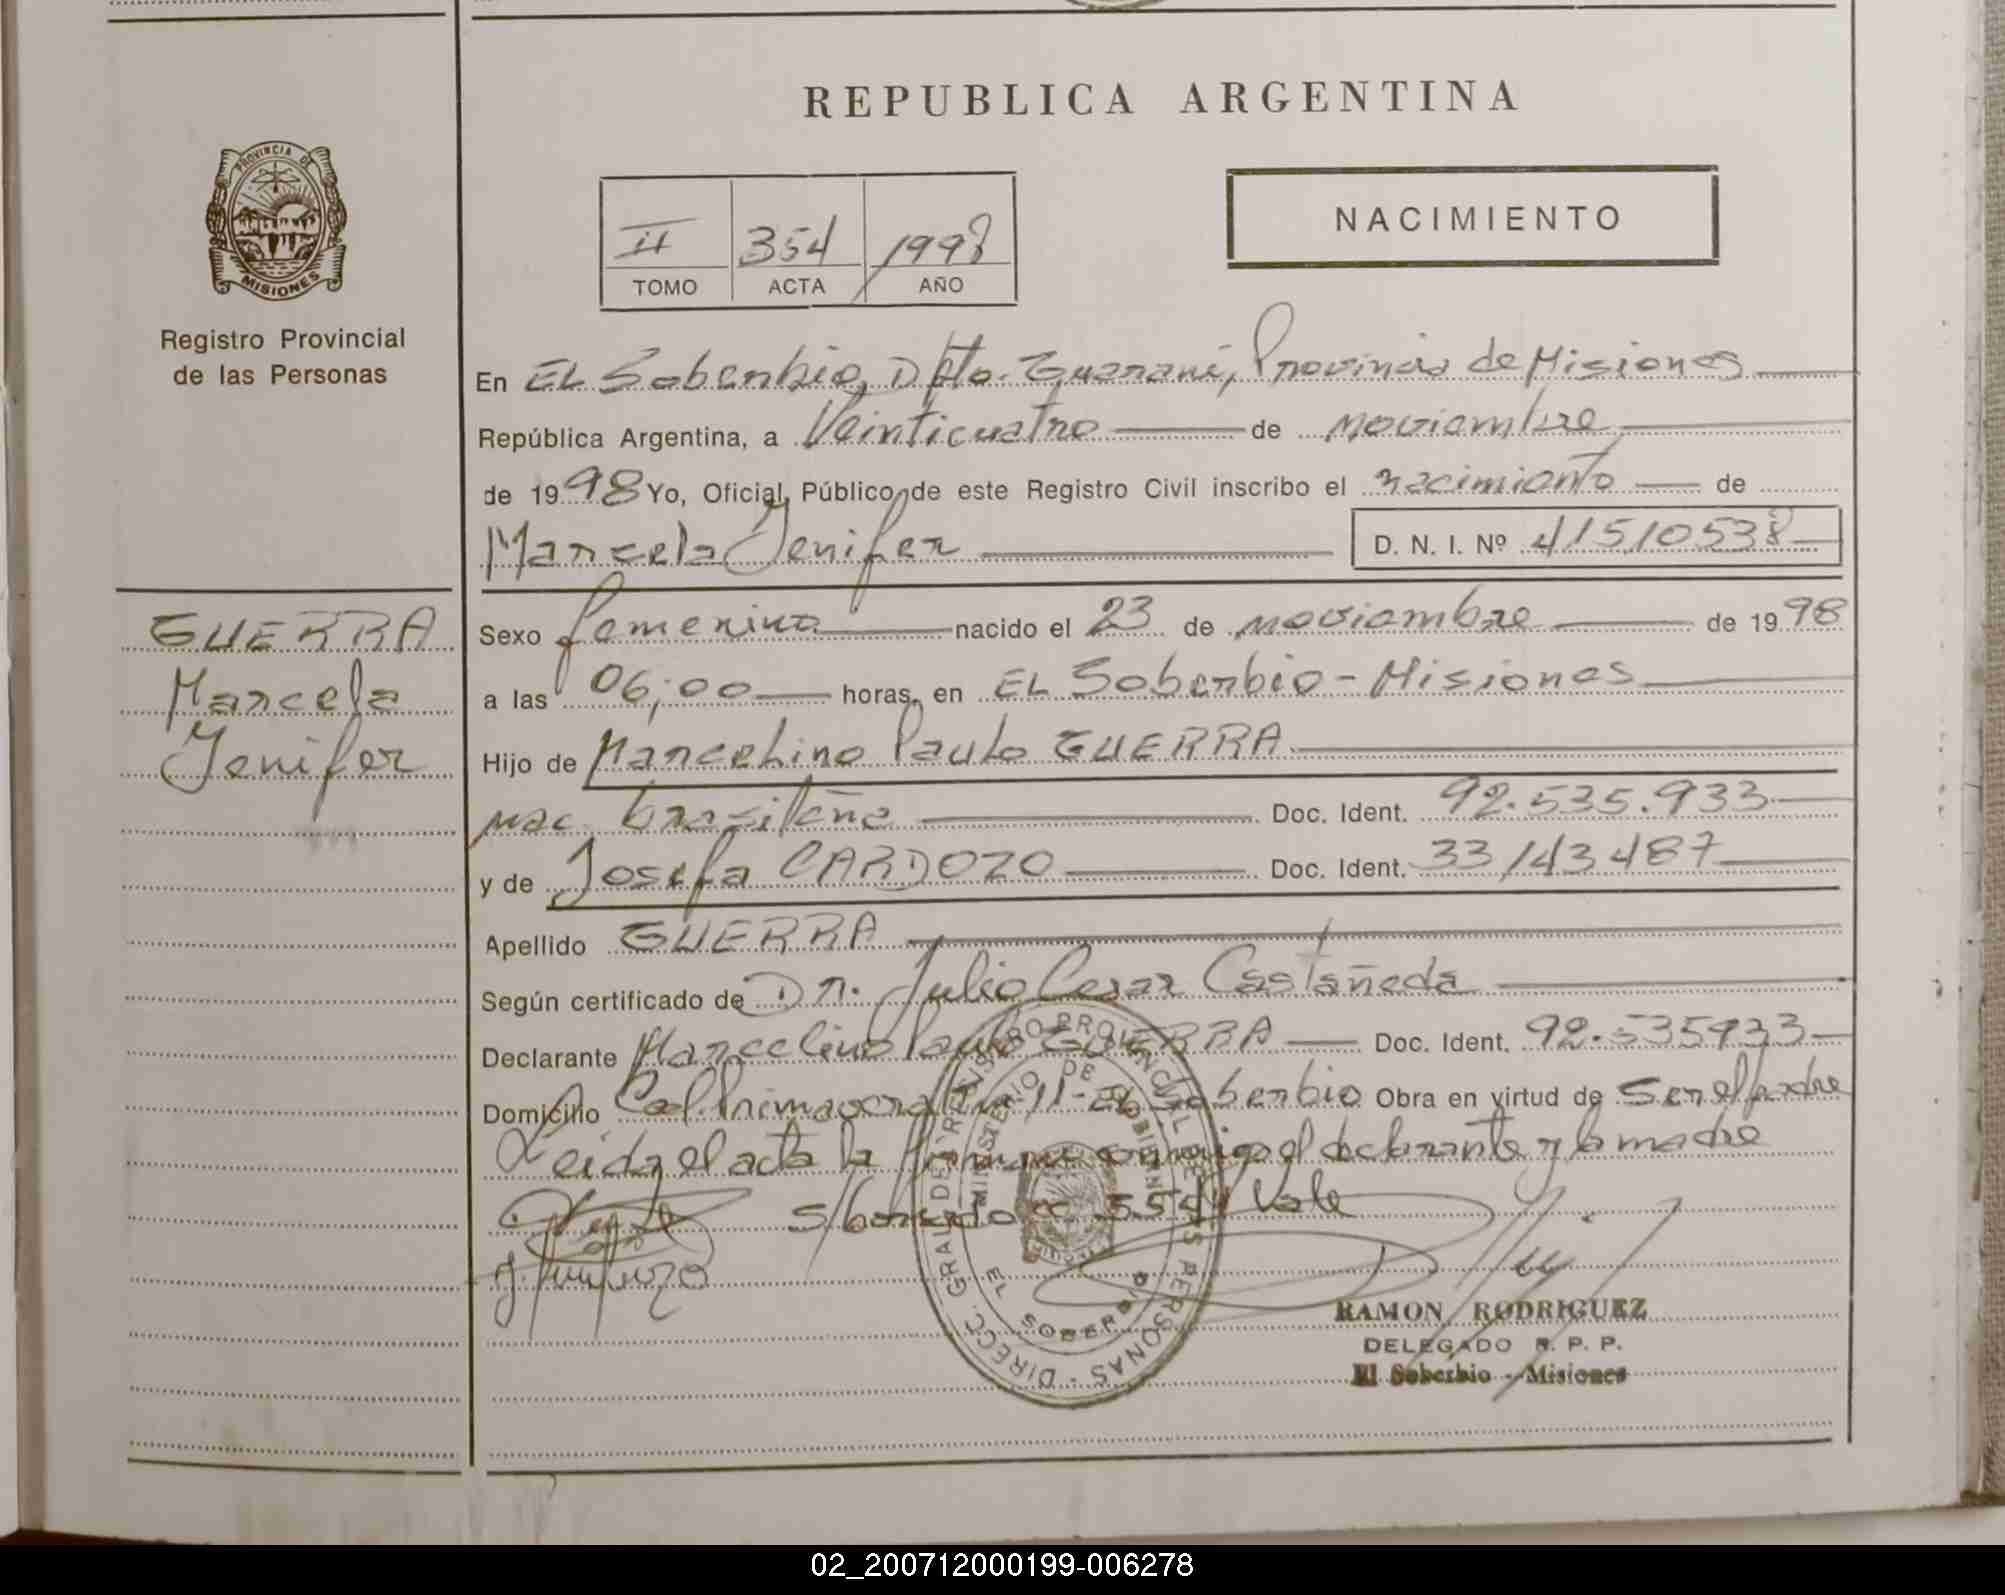 REPUBLICA ARGENTINA
PROVINCIA DE
MISIONES
Registro Provincial
de las Personas
II 354 1998
TOMO ACTA AÑO
NACIMIENTO
En EL Soberbio, Dpto. Guaraní, Provincia de Misiones
República Argentina, a Veinticuatro de noviembre
de 1998 Yo, Oficial Público de este Registro Civil inscribo el nacimiento de
Marcela Jenifer D. N. I. Nº 41510538
GUERRA
Marcela
Jenifer
Sexo femenino nacido el 23 de noviembre de 1998
a las 06;00 horas, en EL Soberbio - Misiones
Hijo de Marcelino Paulo GUERRA
nac. brasileña Doc. Ident. 92.535.933
y de Josefa CARDOZO Doc. Ident. 33143487
Apellido GUERRA
Según certificado de Dr. Julio Cesar Castañeda
Declarante Marcelino Paulo GUERRA Doc. Ident. 92.535933
Domicilio Col. Primavera Km 11 - El Soberbio Obra en virtud de Ser el padre
Leida el acta la firman conmigo el declarante y la madre
S/borrado 554 Vale
DIRECC. GRAL. DEL REGISTRO PROVINCIAL DE LAS PERSONAS
MINISTERIO DE GOBIERNO
EL SOBERBIO
RAMON RODRIGUEZ
DELEGADO R. P. P.
El Soberbio - Misiones
02_200712000199-006278